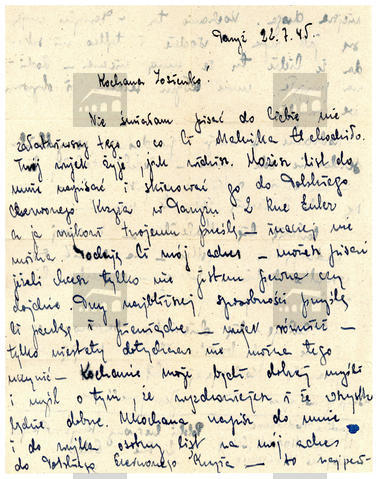 Paryż 22.7.45.
Kochana Józieńko!
Nie śmiałam pisać do Ciebie nie
załatwiwszy tego o co Ci Malutka chodziło.
Twój wujek żyje jak widzisz. Możesz list do
mnie napisać i skierować go do Polskiego
Czerwonego Krzyża w Paryżu 2 Rue Euler
a ja wujkowi Twojemu prześlę – inaczej nie
można. Podaję Ci mój adres – możesz pisać
jeżeli chcesz tylko nie jestem pewna czy
dojdzie. Przy najbliższej sposobności prześlę
Ci paczkę i pieniądze – wujek również –
tylko niestety dotychczas nie można tego
uczynić – Kochanie moje bądź dobrej myśli
i myśl o tym, że wyzdrowiejesz i że wszystko
będzie dobrze. Ukochana napisz do mnie
i do wujka osobny list na mój adres
do Polskiego Czerwonego Krzyża – to najpew-